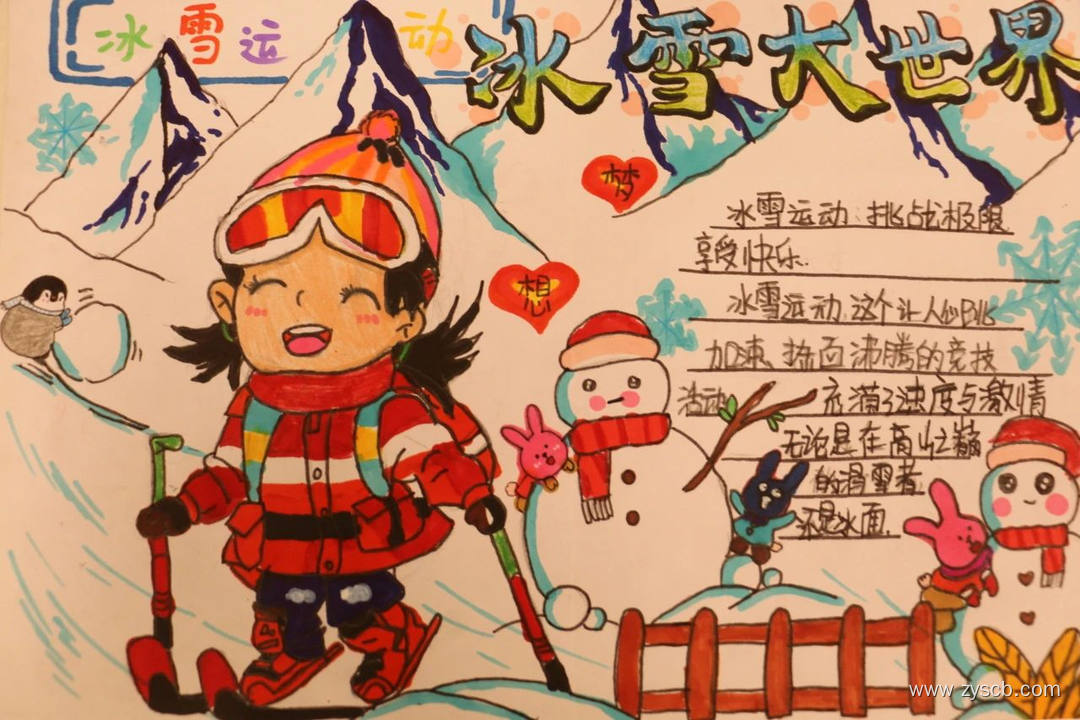 冰雪运动
冰雪大世界
梦
想
冰雪运动,挑战极限
享受快乐.
冰雪运动,这个让人心跳
加速,热血沸腾的竞技
活动 充满了速度与激情
无论是在高山之巅
的滑雪者
还是冰面.
www.zyscb.com